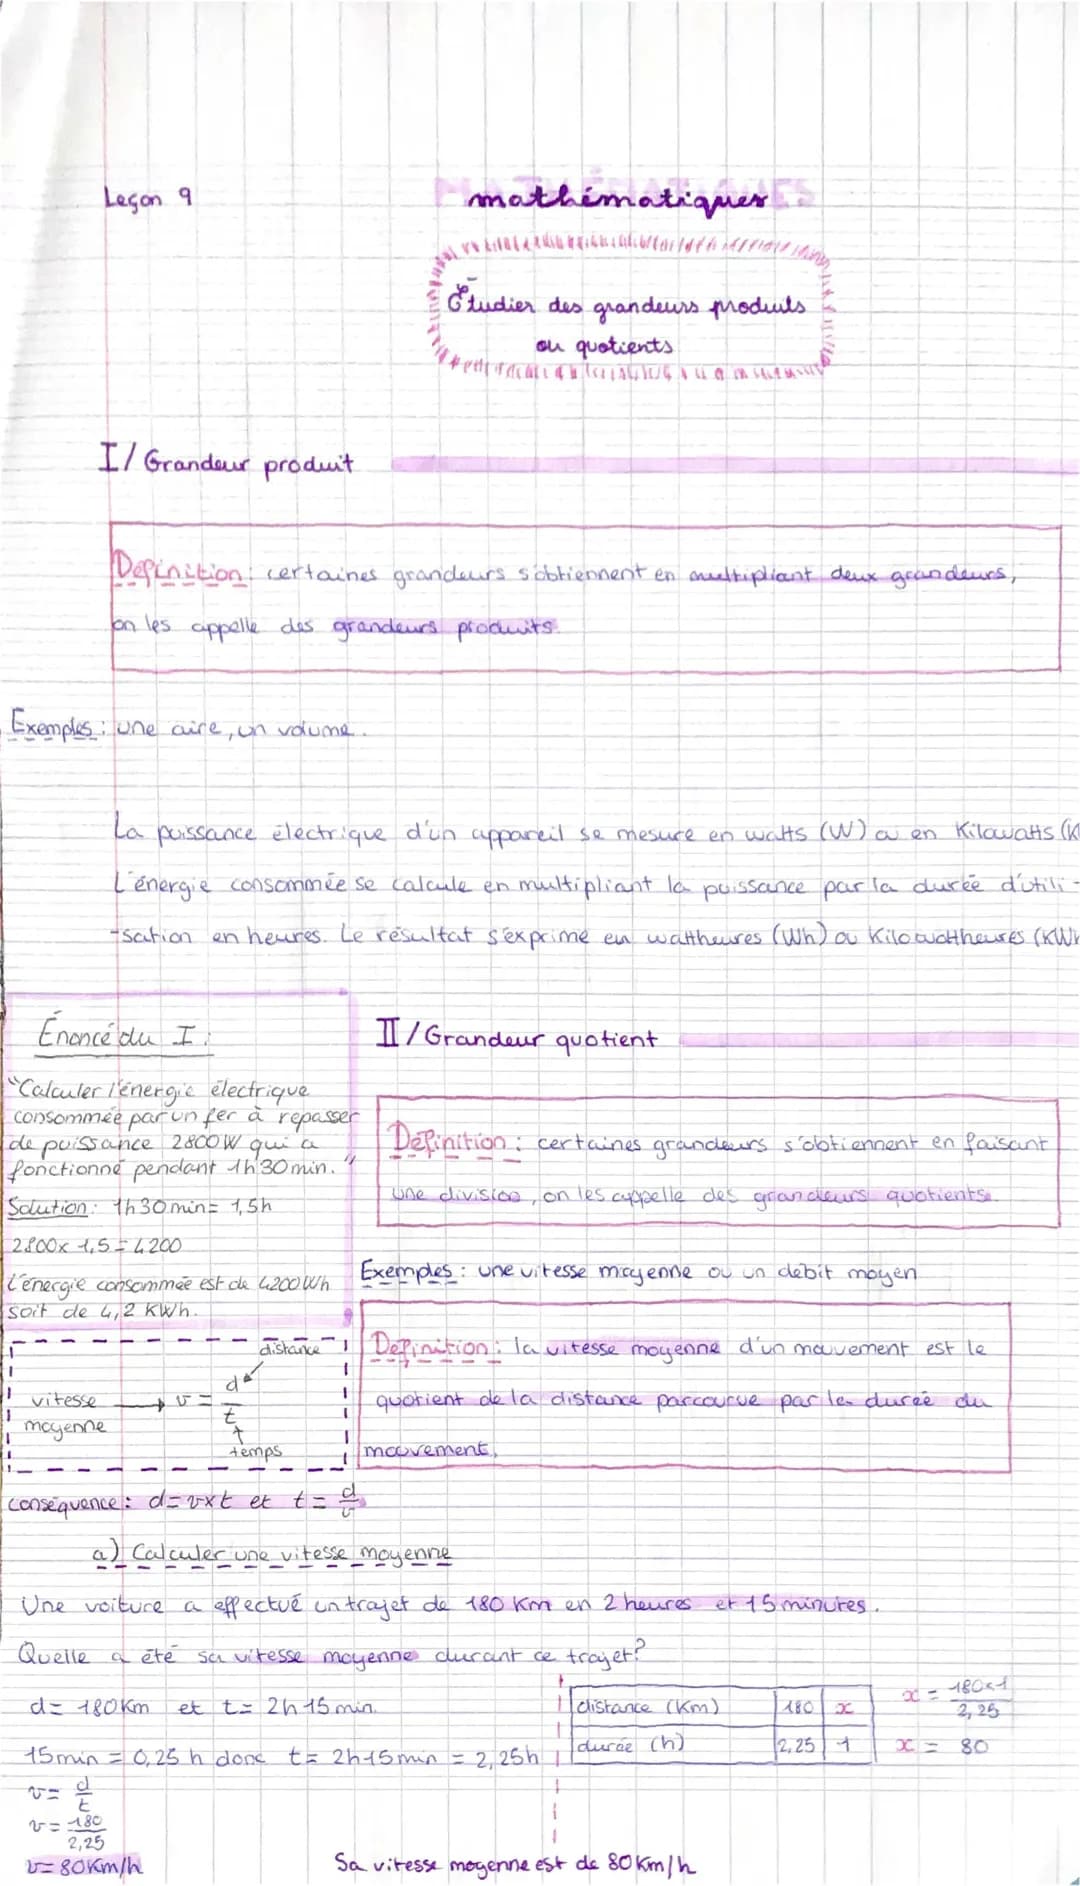 Leçon 9
mathématiques
Étudier des grandeurs produits
ou quotients
I/ Grandeur produit
Définition: certaines grandeurs s'obtiennent en multipliant deux grandeurs,
on les appelle des grandeurs produits.
Exemples : une aire, un volume.
La puissance électrique d'un appareil se mesure en watts (W) ou en Kilowatts (K
L'énergie consommée se calcule en multipliant la puissance par la durée d'utili-
-sation en heures. Le résultat s'exprime en wattheures (Wh) ou Kilowattheures (KWh
Énoncé du I :
"Calculer l'énergie électrique
consommée par un fer à repasser
de puissance 2800W qui a
fonctionné pendant 1h30min."
Solution: 1h30min= 1,5h
2800x 1,5=4200
L'énergie consommée est de 4200Wh
soit de 4,2 KWh.
II/ Grandeur quotient
Définition : certaines grandeurs s'obtiennent en faisant
une division, on les appelle des grandeurs quotients.
Exemples : une vitesse moyenne ou un débit moyen
Définition : la vitesse moyenne d'un mouvement est le
quotient de la distance parcourue par la durée du
mouvement.
distance
vitesse moyenne → v = d/t
temps
conséquence : d=vxt et t= d/v
a) Calculer une vitesse moyenne
Une voiture a effectué un trajet de 180 Km en 2 heures et 15 minutes.
Quelle a été sa vitesse moyenne durant ce trajet?
d= 180Km et t= 2h 15min.
15min = 0,25 h donc t= 2h15min = 2,25h
v= d/t
v= 180/2,25
v= 80Km/h
distance (Km) 180 x
durée (h) 2,25 1
x = 180x1/2,25
x = 80
Sa vitesse moyenne est de 80 Km/h